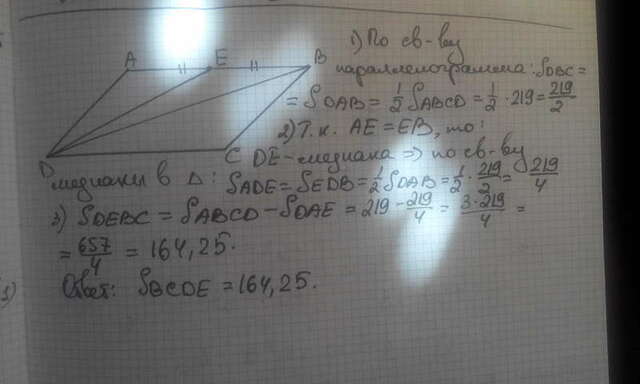 1) По св-ву
A E B
параллелограмма: S DBC =
= S DAB = 1/2 S ABCD = 1/2 · 219 = 219/2
2) Т.к. AE = EB, то:
D C DE - медиана => по св-ву
медианы в Δ: S ADE = S EDB = 1/2 S DAB = 1/2 · 219/2 = 219/4
3) S DEBC = S ABCD - S DAE = 219 - 219/4 = 3·219/4 =
= 657/4 = 164,25.
Ответ: S BCDE = 164,25.